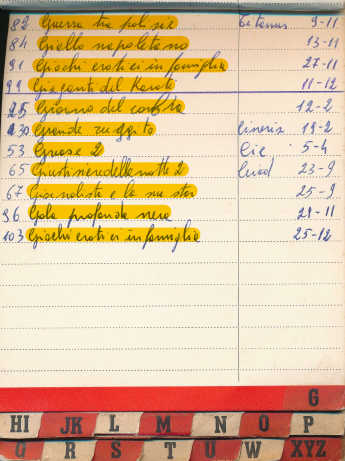 82 Guerra tra polizie Titanus 9-11
84 Giallo napoletano 13-11
91 Giochi erotici in famiglia 27-11
99 Giganti del Karate 11-12
Giorno del cobra 12-2
130 Grande ruggito Cineriz 19-2
53 Grease 2 Cic 5-4
65 Giustiziere della notte 2 23-9
67 Giornalista e la sua star 25-9
96 Gola profonda nera 21-11
103 Giochi erotici in famiglia 25-12
G
HI JK L M N O P
Q R S T U W XYZ